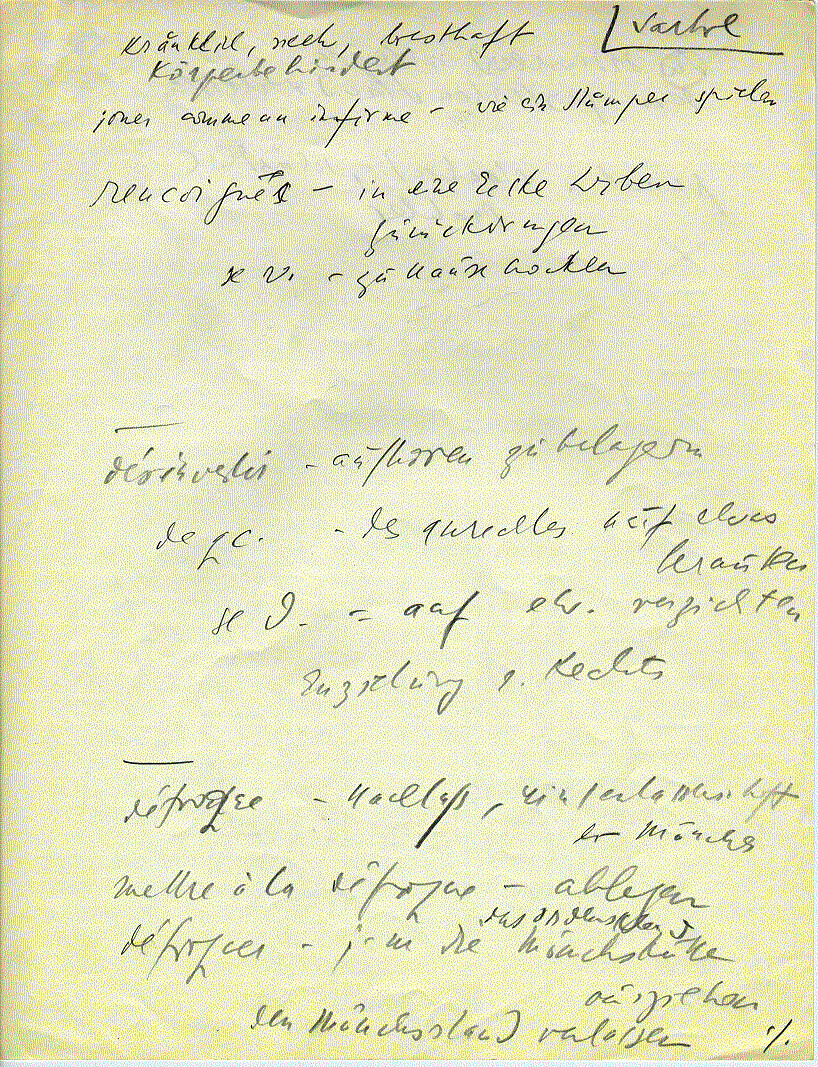 Sartre
kränklich, siech, bresthaft
Körperbehindert
jouer comme un infirme – wie ein Stümper spielen
rencoigner – in eine Ecke treiben
zurückdrängen
se r. – zu Hause hocken
désinvestir – aufhören zu belagern
de qc. – auf etwas
se d. = auf etw. verzichten
Entziehung s. Rechts
défroque – Nachlaß, Hinterlassenschaft
der Mönche
mettre à la défroque – ablegen
das Ordenskleid
défroquer – j-m die Mönchskutte
ausziehen
den Mönchsstand verlassen ·/.